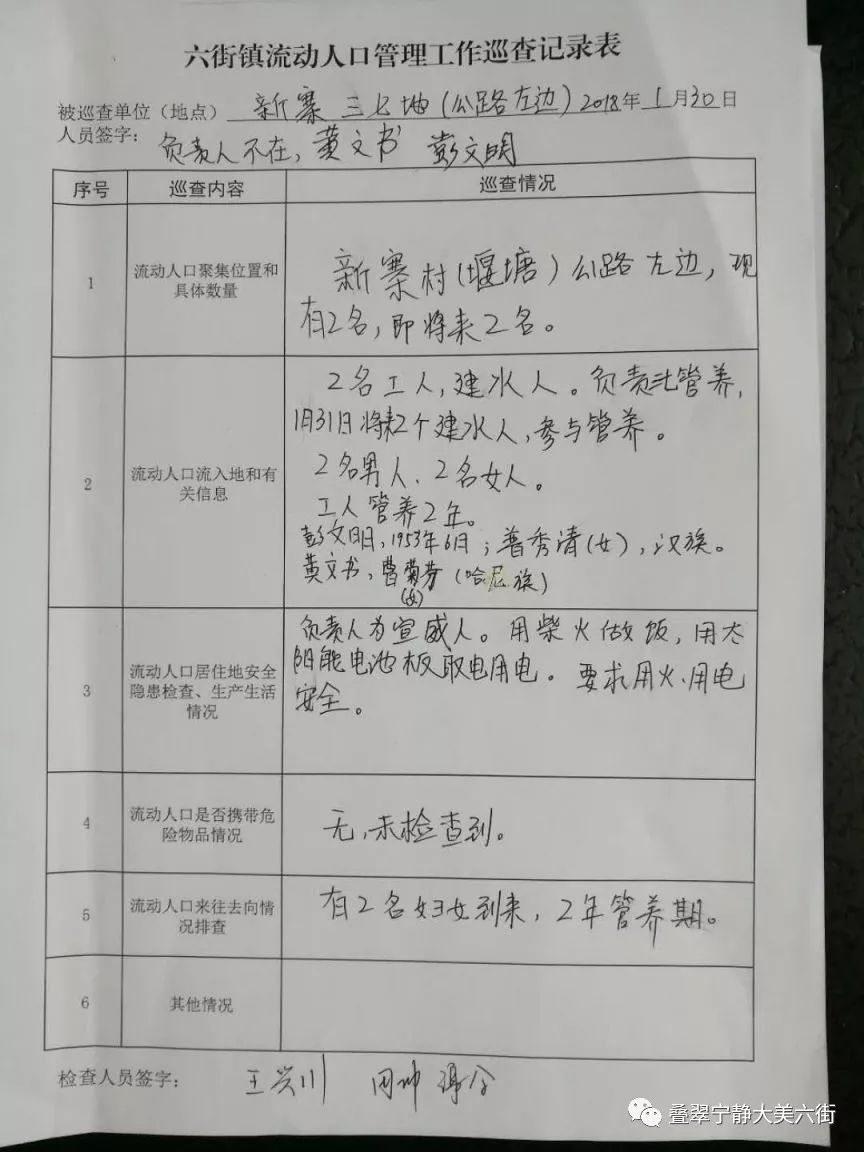 六街镇流动人口管理工作巡查记录表
被巡查单位（地点） 新寨三七地（公路左边）2018年1月30日
人员签字： 负责人不在，黄文书 彭文明
序号 巡查内容 巡查情况
1
流动人口聚集位置和
具体数量
新寨村（堰塘）公路左边，现
有2名，即将来2名。
2
流动人口流入地和有
关信息
2名工人，建水人。负责管养，
1月31日将来2个建水人，参与管养。
2名男人、2名女人。
工人管养2年。
彭文明，1953年6月；普秀清（女），汉族。
黄文书，曹菊芬（哈尼族）
（女）
3
流动人口居住地安全
隐患检查、生产生活
情况
负责人为宣威人。用柴火做饭，用太
阳能电池板取电用电。要求用火、用电
安全。
4
流动人口是否携带危
险物品情况
无，未检查到。
5
流动人口来往去向情
况排查
有2名妇女到来，2年管养期。
6
其他情况
检查人员签字： 王兴川 周帅
叠翠宁静大美六街